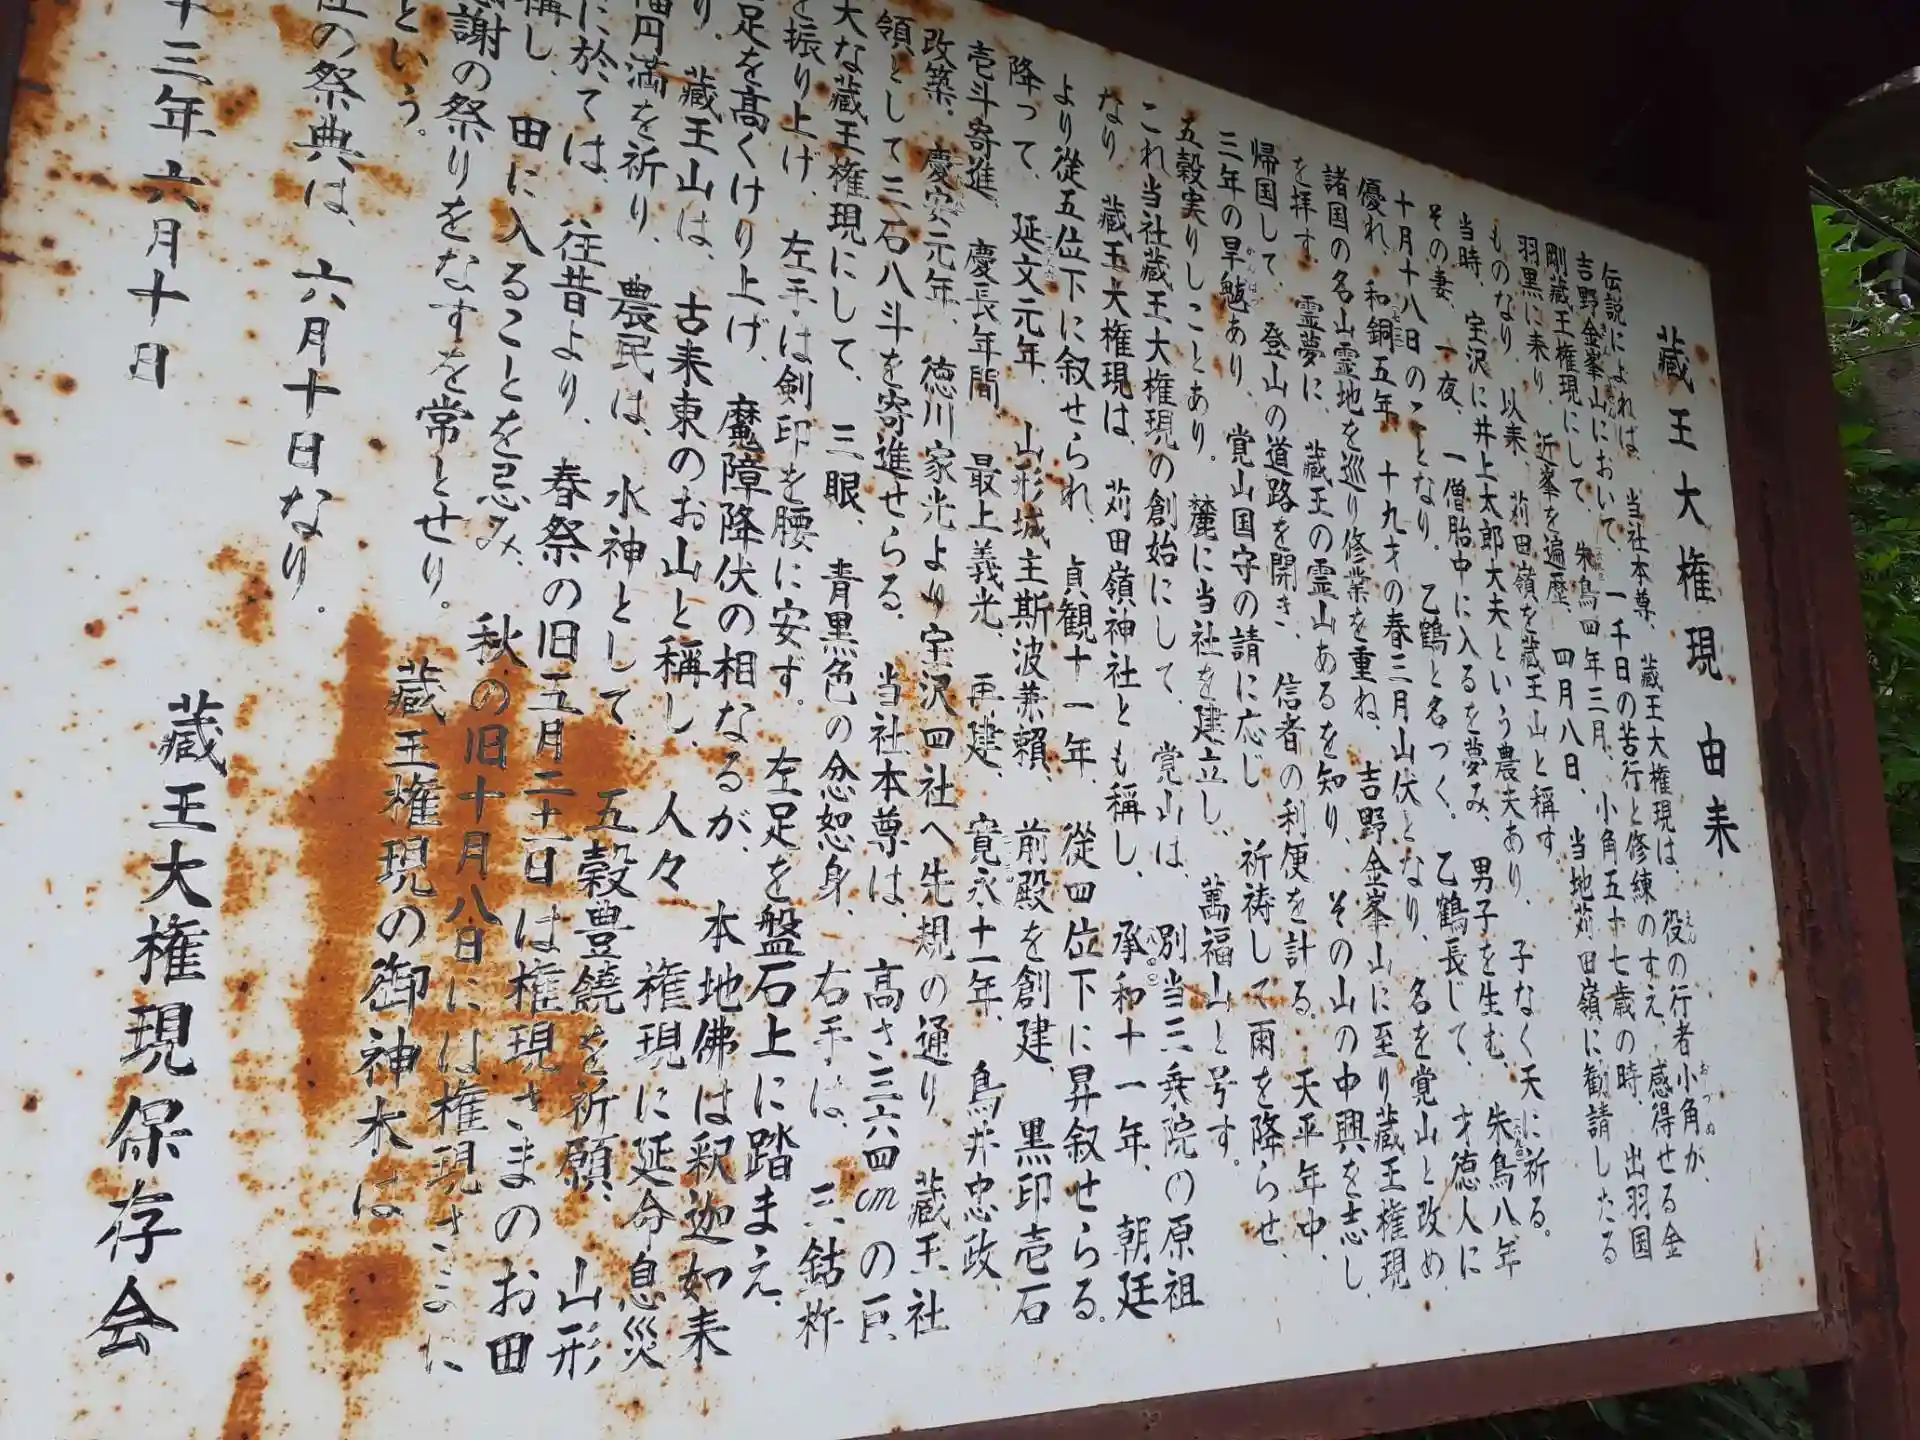 蔵王大権現 由来
伝説によれば、当社本尊、蔵王大権現は、役の行者小角が、
吉野金峯山において、一千日の苦行と修練のすえ、感得せる金
剛蔵王権現にして、朱鳥四年三月、小角五十七歳の時、出羽国
羽黒に来り、近峯を遍歴 四月八日、当地苅田嶺に勧請したる
ものなり、以来、苅田嶺を蔵王山と称す
当時、宝沢に井上太郎大夫という農夫あり、子なく天に祈る。
その妻、一夜、一僧胎中に入るを夢み、男子を生む、朱鳥八年
十月十八日のことなり。乙鶴と名づく。乙鶴長じて、才徳人に
優れ、和銅五年、十九才の春三月山伏となり、名を覚山と改め
諸国の名山霊地を巡り修業を重ね、吉野金峯山に至り蔵王権現
を拝す。霊夢に、蔵王の霊山あるを知り、その山の中興を志し、
帰国して、登山の道路を開き、信者の利便を計る。天平年中、
三年の旱魃あり、覚山国守の請に応じ 祈祷して雨を降らせ、
五穀実りしことあり。麓に当社を建立し、萬福山と号す。
これ当社蔵王大権現の創始にして、覚山は、別当三乗院の原祖
なり、蔵王大権現は、苅田嶺神社とも称し、承和十一年、朝廷
より従五位下に叙せられ、貞観十一年、従四位下に昇叙せらる。
降って、延文元年、山形城主斯波兼頼、前殿を創建、黒印壱石
壱斗寄進、慶長年間、最上義光、再建、寛永十一年、鳥井忠政、
改築、慶安元年、徳川家光より宝沢四社へ先規の通り 蔵王社
領として三石八斗を寄進せらる。当社本尊は、高さ三六四cmの巨
大な蔵王権現にして、三眼、青黒色の忿怒身、右手は、三鈷杵
を振り上げ、左手は剣印を腰に安ず。左足を盤石上に踏まえ、
足を高くけり上げ、魔障降伏の相なるが、本地佛は釈迦如来
り。蔵王山は、古来東のお山と称し、人々 権現に延命息災
福円満を祈り、農民は、水神として、五穀豊饒を祈願、山形
に於ては、往昔より、春祭の旧五月二十一日は権現さまのお田
称し、田に入ることを忌み、秋の旧十月八日には権現さまに
感謝の祭りをなすを常とせり。蔵王権現の御神木は
という。
社の祭典は、六月十日なり。
十三年六月十日
蔵王大権現保存会